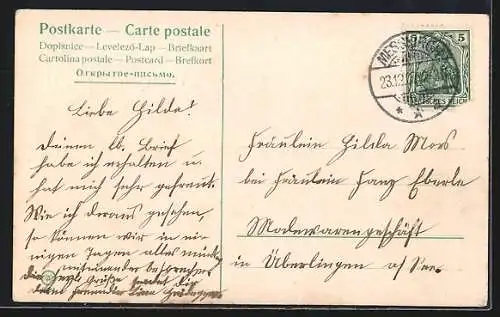 Postkarte — Carte postale
Dopisnice — Levelező-Lap — Briefkaart
Cartolina postale — Postcard — Brefkort
Открытое письмо.
5 5
23.12.
DEUTSCHES REICH
Liebe Hilda!
Deinen lb. Brief
habe ich erhalten u.
hat mich sehr gefreut.
Wie ich daraus gesehen,
so können wir in ei-
nigen Tagen alles mündl.
miteinander besprechen
die herzl. Grüße sendet dir
deine Freundin
Fräulein Hilda Mors
bei Fräulein Fanz Eberle
Modewarengeschäft
in Überlingen a/ See.